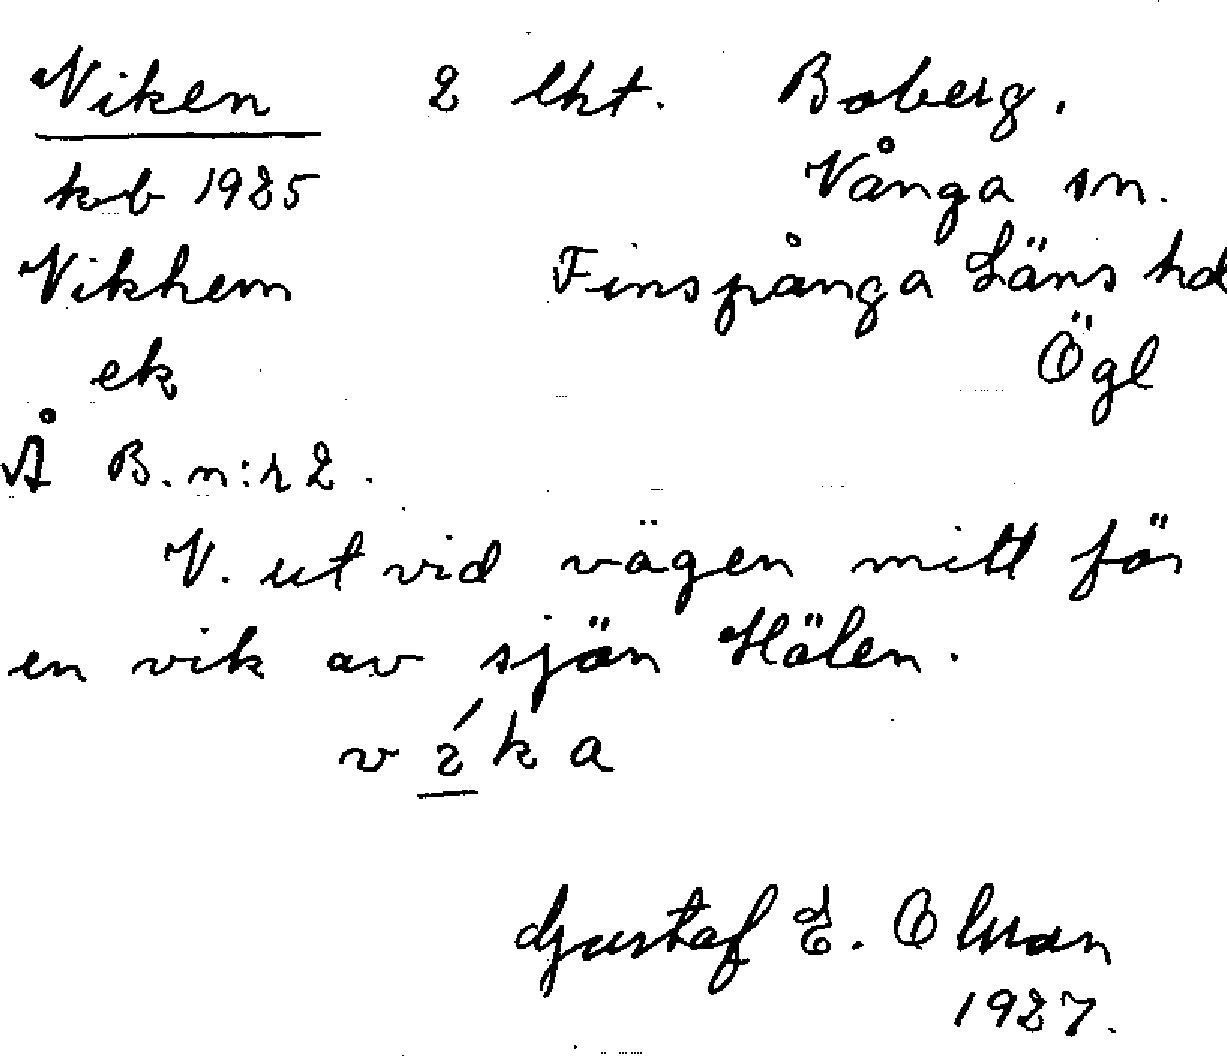 Viken 2 lht. Boberg.
kb 1925 Vånga sn.
Vikhem Finspånga Läns hd
ek Ögl
Å B. n:r 2.
V. ut vid vägen mitt för
en vik av sjön Hälen.
v í k a
Gustaf E. Olsson
1927.